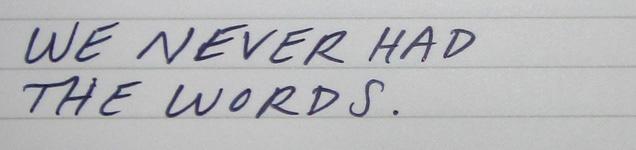 WE NEVER HAD
THE WORDS.